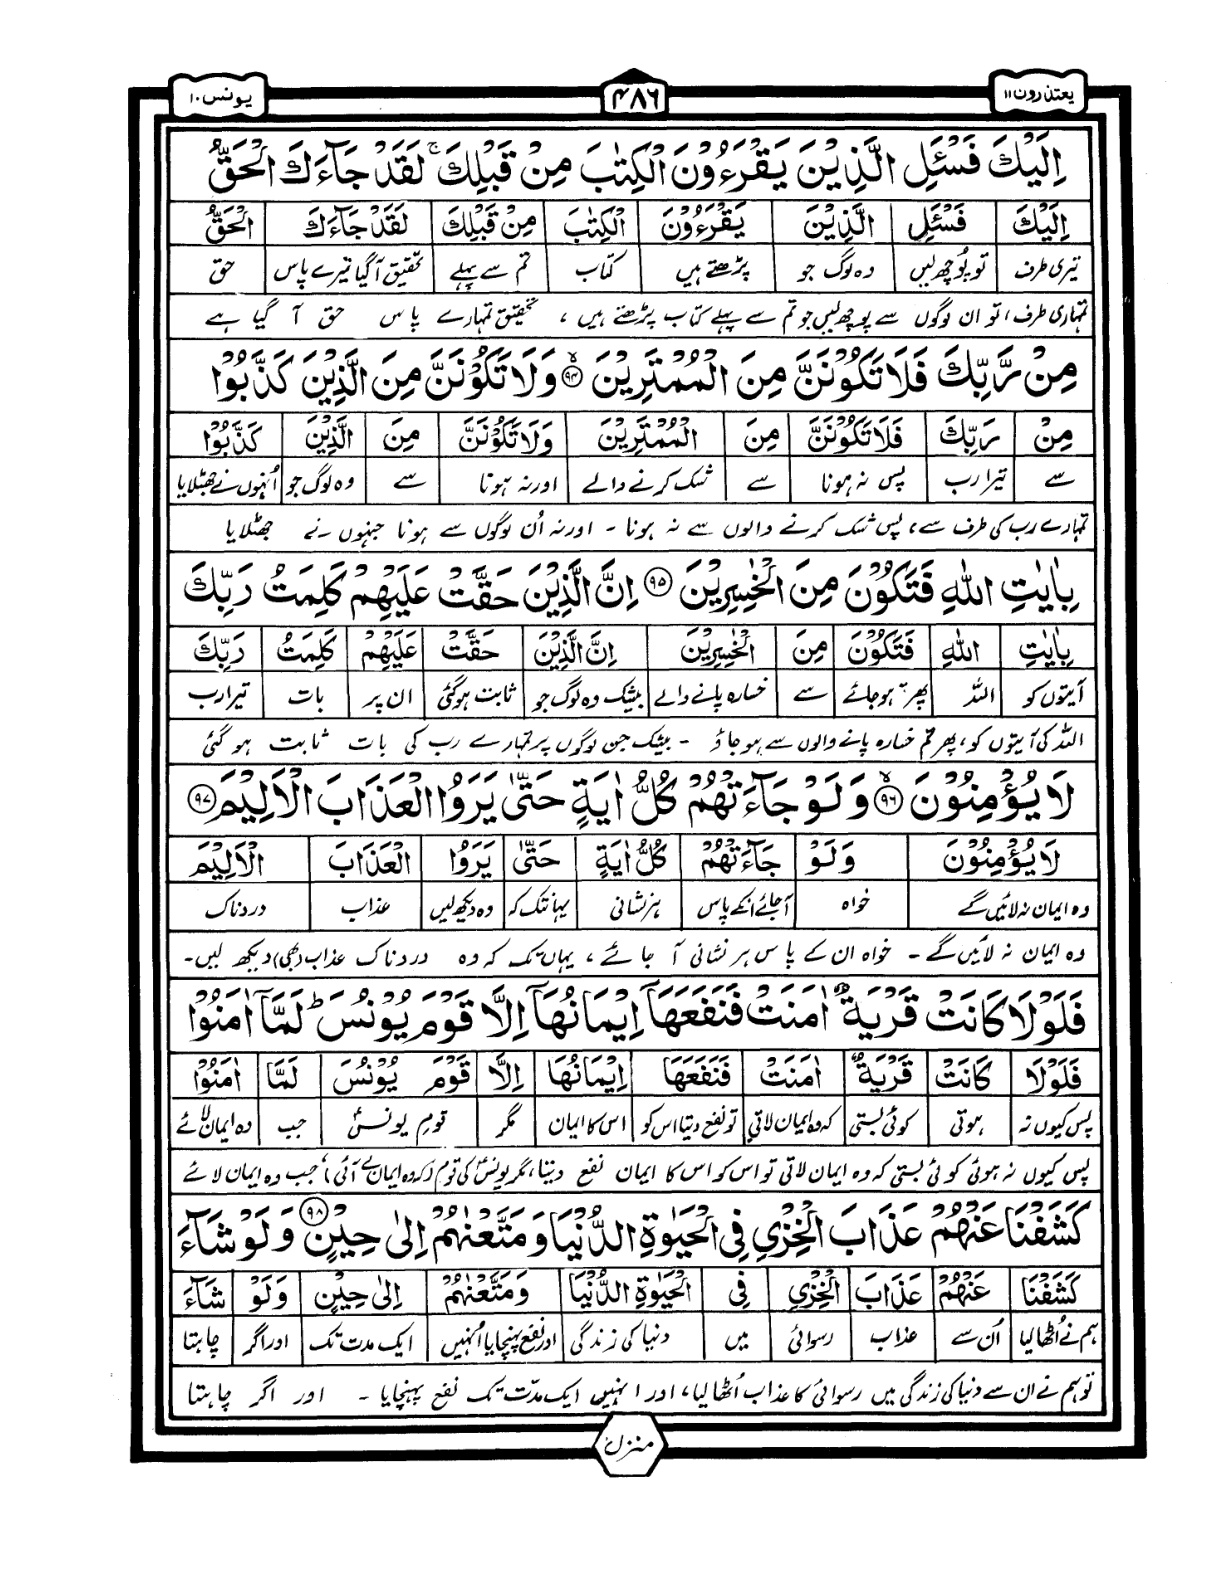 یعتذرون ۱۱
۴۸۶
یونس ۱۰
اِلَیْكَ فَسْـَٔلِ الَّذِیْنَ یَقْرَءُوْنَ الْكِتٰبَ مِنْ قَبْلِكَ ۚ لَقَدْ جَآءَكَ الْحَقُّ
اِلَیْكَ فَسْـَٔلِ الَّذِیْنَ یَقْرَءُوْنَ الْكِتٰبَ مِنْ قَبْلِكَ لَقَدْ جَآءَكَ الْحَقُّ
تیری طرف تو پُوچھ لیں وہ لوگ جو پڑھتے ہیں کتاب تم سے پہلے تحقیق آگیا تیرے پاس حق
تمہاری طرف، تو ان لوگوں سے پوچھ لیں جو تم سے پہلے کتاب پڑھتے ہیں، تحقیق تمہارے پاس حق آ گیا ہے
مِنْ رَّبِّكَ فَلَا تَكُوْنَنَّ مِنَ الْمُمْتَرِیْنَ ۙ۹۴ وَلَا تَكُوْنَنَّ مِنَ الَّذِیْنَ كَذَّبُوْا
مِنْ رَبِّكَ فَلَا تَكُوْنَنَّ مِنَ الْمُمْتَرِیْنَ وَلَا تَكُوْنَنَّ مِنَ الَّذِیْنَ كَذَّبُوْا
سے تیرا رب پس نہ ہونا سے شک کرنے والے اور نہ ہونا سے وہ لوگ جو اُنہوں نے جھٹلایا
تمہارے رب کی طرف سے، پس شک کرنے والوں سے نہ ہونا ۔ اور نہ اُن لوگوں سے ہونا جنہوں نے جھٹلایا
بِاٰیٰتِ اللّٰهِ فَتَكُوْنَ مِنَ الْخٰسِرِیْنَ ۹۵ اِنَّ الَّذِیْنَ حَقَّتْ عَلَیْهِمْ كَلِمَتُ رَبِّكَ
بِاٰیٰتِ اللّٰهِ فَتَكُوْنَ مِنَ الْخٰسِرِیْنَ اِنَّ الَّذِیْنَ حَقَّتْ عَلَیْهِمْ كَلِمَتُ رَبِّكَ
آیتوں کو اللہ پھر ہو جائے سے خسارہ پانے والے بیشک وہ لوگ جو ثابت ہوگئی ان پر بات تیرا رب
اللہ کی آیتوں کو، پھر تم خسارہ پانے والوں سے ہو جاؤ ۔ بیشک جن لوگوں پر تمہارے رب کی بات ثابت ہو گئی
لَا یُؤْمِنُوْنَ ۙ۹۶ وَلَوْ جَآءَتْهُمْ كُلُّ اٰیَةٍ حَتّٰی یَرَوُا الْعَذَابَ الْاَلِیْمَ ۹۷
لَا یُؤْمِنُوْنَ وَلَوْ جَآءَتْهُمْ كُلُّ اٰیَةٍ حَتّٰی یَرَوُا الْعَذَابَ الْاَلِیْمَ
وہ ایمان نہ لائیں گے خواہ آجائے انکے پاس ہر نشانی یہانتک کہ وہ دیکھ لیں عذاب دردناک
وہ ایمان نہ لائیں گے ۔ خواہ ان کے پاس ہر نشانی آ جائے، یہاں تک کہ وہ دردناک عذاب (بھی) دیکھ لیں۔
فَلَوْلَا كَانَتْ قَرْیَةٌ اٰمَنَتْ فَنَفَعَهَاۤ اِیْمَانُهَاۤ اِلَّا قَوْمَ یُوْنُسَ ؕ لَمَّاۤ اٰمَنُوْا
فَلَوْلَا كَانَتْ قَرْیَةٌ اٰمَنَتْ فَنَفَعَهَا اِیْمَانُهَا اِلَّا قَوْمَ یُوْنُسَ لَمَّا اٰمَنُوْا
پس کیوں نہ ہوتی کوئی بستی کہ وہ ایمان لاتی تو نفع دیتا اس کو اس کا ایمان مگر قومِ یونسؑ جب وہ ایمان لائے
پس کیوں نہ ہوئی کوئی بستی کہ وہ ایمان لاتی تو اس کو اس کا ایمان نفع دیتا، مگر یونسؑ کی قوم (کہ وہ ایمان لے آئی) جب وہ ایمان لائے
كَشَفْنَا عَنْهُمْ عَذَابَ الْخِزْیِ فِی الْحَیٰوةِ الدُّنْیَا وَمَتَّعْنٰهُمْ اِلٰی حِیْنٍ ۹۸ وَلَوْ شَآءَ
كَشَفْنَا عَنْهُمْ عَذَابَ الْخِزْیِ فِی الْحَیٰوةِ الدُّنْیَا وَمَتَّعْنٰهُمْ اِلٰی حِیْنٍ وَلَوْ شَآءَ
ہم نے اُٹھالیا اُن سے عذاب رسوائی میں دنیا کی زندگی اور نفع پہنچایا اُنہیں ایک مدت تک اور اگر چاہتا
تو ہم نے ان سے دنیا کی زندگی میں رسوائی کا عذاب اُٹھالیا، اور انہیں ایک مدّت تک نفع پہنچایا ۔ اور اگر چاہتا